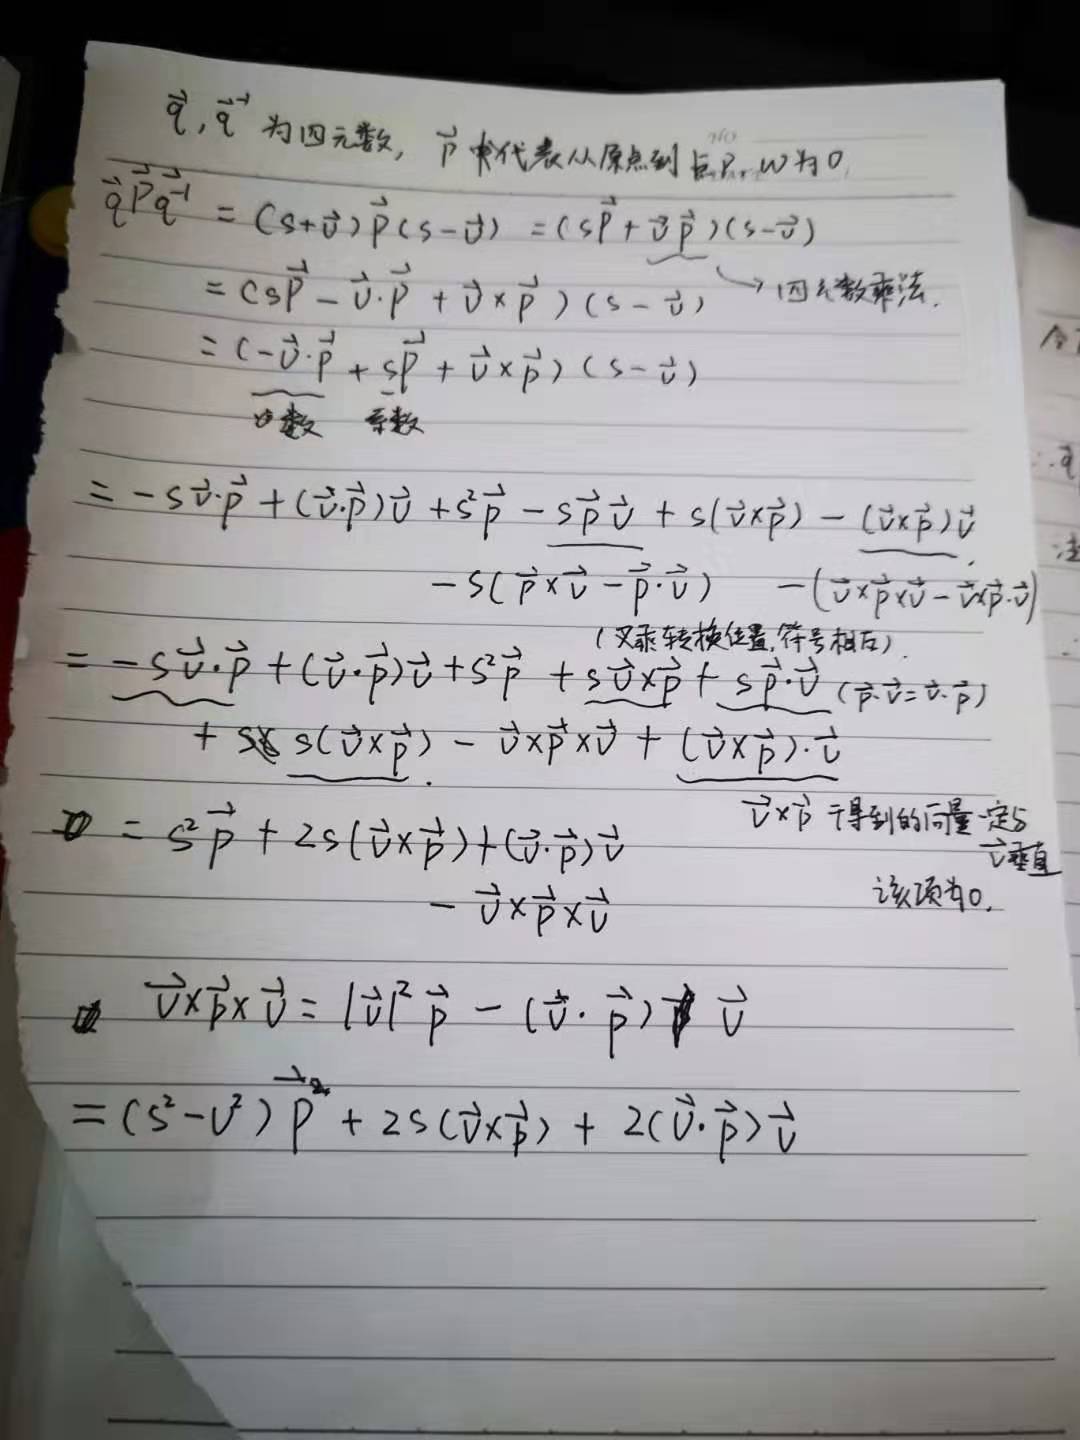 q⃗, q⃗⁻¹ 为四元数, p⃗ 代表从原点到点P. w为0.
q⃗p⃗q⃗⁻¹ = (s+v⃗)p⃗(s-v⃗) = (sp⃗+v⃗p⃗)(s-v⃗)
= (sp⃗ - v⃗·p⃗ + v⃗×p⃗)(s-v⃗) → 四元数乘法.
= (-v⃗·p⃗ + sp⃗ + v⃗×p⃗)(s-v⃗)
数 系数
= -sv⃗·p⃗ + (v⃗·p⃗)v⃗ + s²p⃗ - sp⃗v⃗ + s(v⃗×p⃗) - (v⃗×p⃗)v⃗
-s(p⃗×v⃗ - p⃗·v⃗) -(v⃗×p⃗×v⃗ - v⃗×p⃗·v⃗)
(叉乘转换位置,符号相反).
= -sv⃗·p⃗ + (v⃗·p⃗)v⃗ + s²p⃗ + sv⃗×p⃗ + sp⃗·v⃗ (p⃗·v⃗=v⃗·p⃗)
+ s(v⃗×p⃗) - v⃗×p⃗×v⃗ + (v⃗×p⃗)·v⃗
v⃗×p⃗ 得到的向量一定与
v⃗垂直
该项为0.
= s²p⃗ + 2s(v⃗×p⃗) + (v⃗·p⃗)v⃗
- v⃗×p⃗×v⃗
v⃗×p⃗×v⃗ = |v⃗|²p⃗ - (v⃗·p⃗)v⃗
= (s²-v²)p⃗ + 2s(v⃗×p⃗) + 2(v⃗·p⃗)v⃗